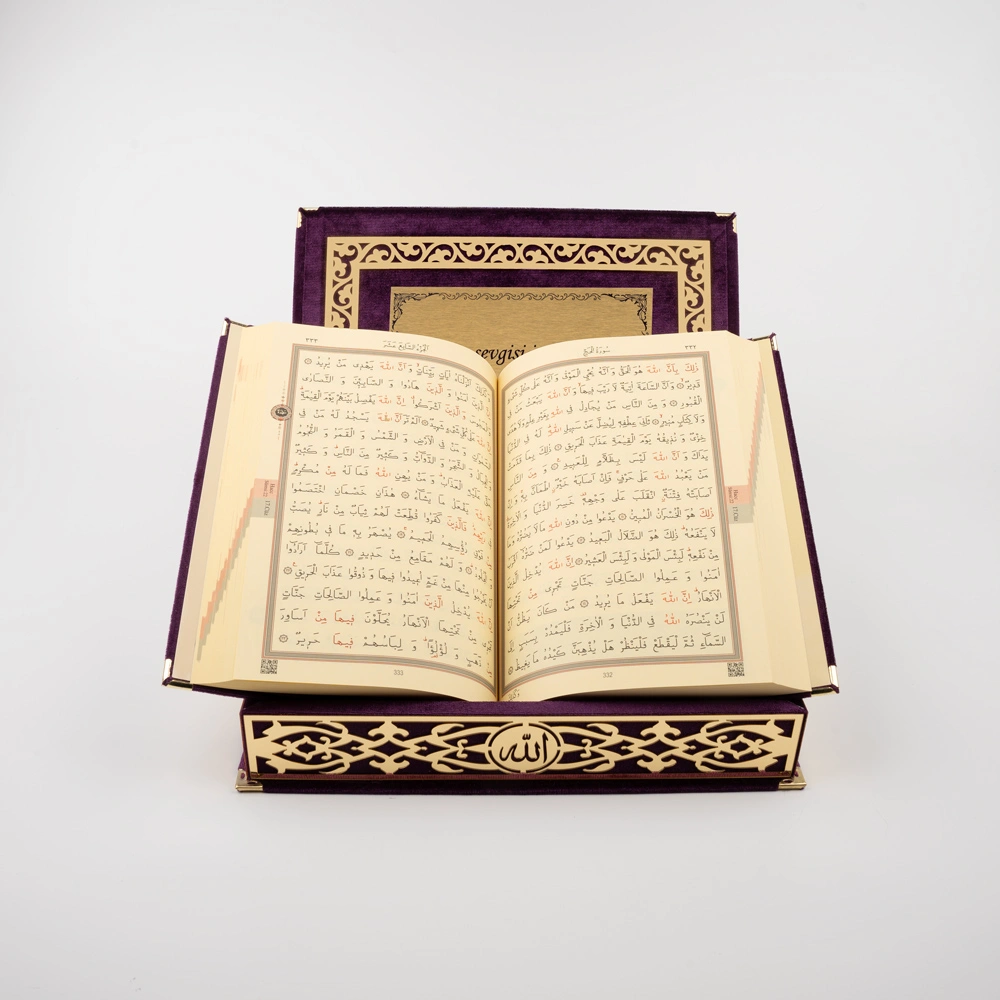 sevgisi
سُورَةُ الْحَجِّ
٣٣٢
ذٰلِكَ بِاَنَّ اللّٰهَ هُوَ الْحَقُّ وَاَنَّهُ يُحْيِ الْمَوْتٰى وَاَنَّهُ عَلٰى كُلِّ شَيْءٍ
قَدِيرٌ وَاَنَّ السَّاعَةَ اٰتِيَةٌ لَا رَيْبَ فِيهَا وَاَنَّ اللّٰهَ يَبْعَثُ مَنْ فِي
الْقُبُورِ وَمِنَ النَّاسِ مَنْ يُجَادِلُ فِي اللّٰهِ بِغَيْرِ عِلْمٍ وَلَا هُدًى
وَلَا كِتَابٍ مُنِيرٍ ثَانِيَ عِطْفِهِ لِيُضِلَّ عَنْ سَبِيلِ اللّٰهِ لَهُ فِي الدُّنْيَا
خِزْيٌ وَنُذِيقُهُ يَوْمَ الْقِيٰمَةِ عَذَابَ الْحَرِيقِ ذٰلِكَ بِمَا قَدَّمَتْ
يَدَاكَ وَاَنَّ اللّٰهَ لَيْسَ بِظَلَّامٍ لِلْعَبِيدِ وَمِنَ النَّاسِ
مَنْ يَعْبُدُ اللّٰهَ عَلٰى حَرْفٍ فَاِنْ اَصَابَهُ خَيْرٌ اطْمَاَنَّ بِهِ وَاِنْ
اَصَابَتْهُ فِتْنَةٌ انْقَلَبَ عَلٰى وَجْهِهِ خَسِرَ الدُّنْيَا وَالْاٰخِرَةَ
ذٰلِكَ هُوَ الْخُسْرَانُ الْمُبِينُ يَدْعُوا مِنْ دُونِ اللّٰهِ مَا لَا يَضُرُّهُ وَمَا
لَا يَنْفَعُهُ ذٰلِكَ هُوَ الضَّلَالُ الْبَعِيدُ يَدْعُوا لَمَنْ ضَرُّهُ اَقْرَبُ
مِنْ نَفْعِهِ لَبِئْسَ الْمَوْلٰى وَلَبِئْسَ الْعَشِيرُ اِنَّ اللّٰهَ يُدْخِلُ الَّذِينَ
اٰمَنُوا وَعَمِلُوا الصَّالِحَاتِ جَنَّاتٍ تَجْرِي مِنْ تَحْتِهَا
الْاَنْهَارُ اِنَّ اللّٰهَ يَفْعَلُ مَا يُرِيدُ مَنْ كَانَ يَظُنُّ اَنْ
لَنْ يَنْصُرَهُ اللّٰهُ فِي الدُّنْيَا وَالْاٰخِرَةِ فَلْيَمْدُدْ بِسَبَبٍ اِلَى
السَّمَاءِ ثُمَّ لْيَقْطَعْ فَلْيَنْظُرْ هَلْ يُذْهِبَنَّ كَيْدُهُ مَا يَغِيظُ
332
٣٣٣
اَلْجُزْءُ السَّابِعَ عَشَرَ
اَنْزَلْنَاهُ اٰيَاتٍ بَيِّنَاتٍ وَاَنَّ اللّٰهَ يَهْدِي مَنْ يُرِيدُ
الَّذِينَ اٰمَنُوا وَالَّذِينَ هَادُوا وَالصَّابِئِينَ وَالنَّصَارٰى
وَالَّذِينَ اَشْرَكُوا اِنَّ اللّٰهَ يَفْصِلُ بَيْنَهُمْ يَوْمَ الْقِيٰمَةِ
عَلٰى كُلِّ شَيْءٍ شَهِيدٌ اَلَمْ تَرَ اَنَّ اللّٰهَ يَسْجُدُ لَهُ مَنْ فِي
وَمَنْ فِي الْاَرْضِ وَالشَّمْسُ وَالْقَمَرُ وَالنُّجُومُ
وَالشَّجَرُ وَالدَّوَابُّ وَكَثِيرٌ مِنَ النَّاسِ وَكَثِيرٌ
الْعَذَابُ وَمَنْ يُهِنِ اللّٰهُ فَمَا لَهُ مِنْ مُكْرِمٍ
يَفْعَلُ مَا يَشَاءُ هٰذَانِ خَصْمَانِ اخْتَصَمُوا
فَالَّذِينَ كَفَرُوا قُطِّعَتْ لَهُمْ ثِيَابٌ مِنْ نَارٍ يُصَبُّ
فَوْقِ رُؤُسِهِمُ الْحَمِيمُ يُصْهَرُ بِهِ مَا فِي بُطُونِهِمْ
وَالْجُلُودُ وَلَهُمْ مَقَامِعُ مِنْ حَدِيدٍ كُلَّمَا اَرَادُوا
يَخْرُجُوا مِنْهَا مِنْ غَمٍّ اُعِيدُوا فِيهَا وَذُوقُوا عَذَابَ الْحَرِيقِ
اللّٰهَ يُدْخِلُ الَّذِينَ اٰمَنُوا وَعَمِلُوا الصَّالِحَاتِ جَنَّاتٍ
تَجْرِي مِنْ تَحْتِهَا الْاَنْهَارُ يُحَلَّوْنَ فِيهَا مِنْ اَسَاوِرَ
ذَهَبٍ وَلُؤْلُؤًا وَلِبَاسُهُمْ فِيهَا حَرِيرٌ
333
الله